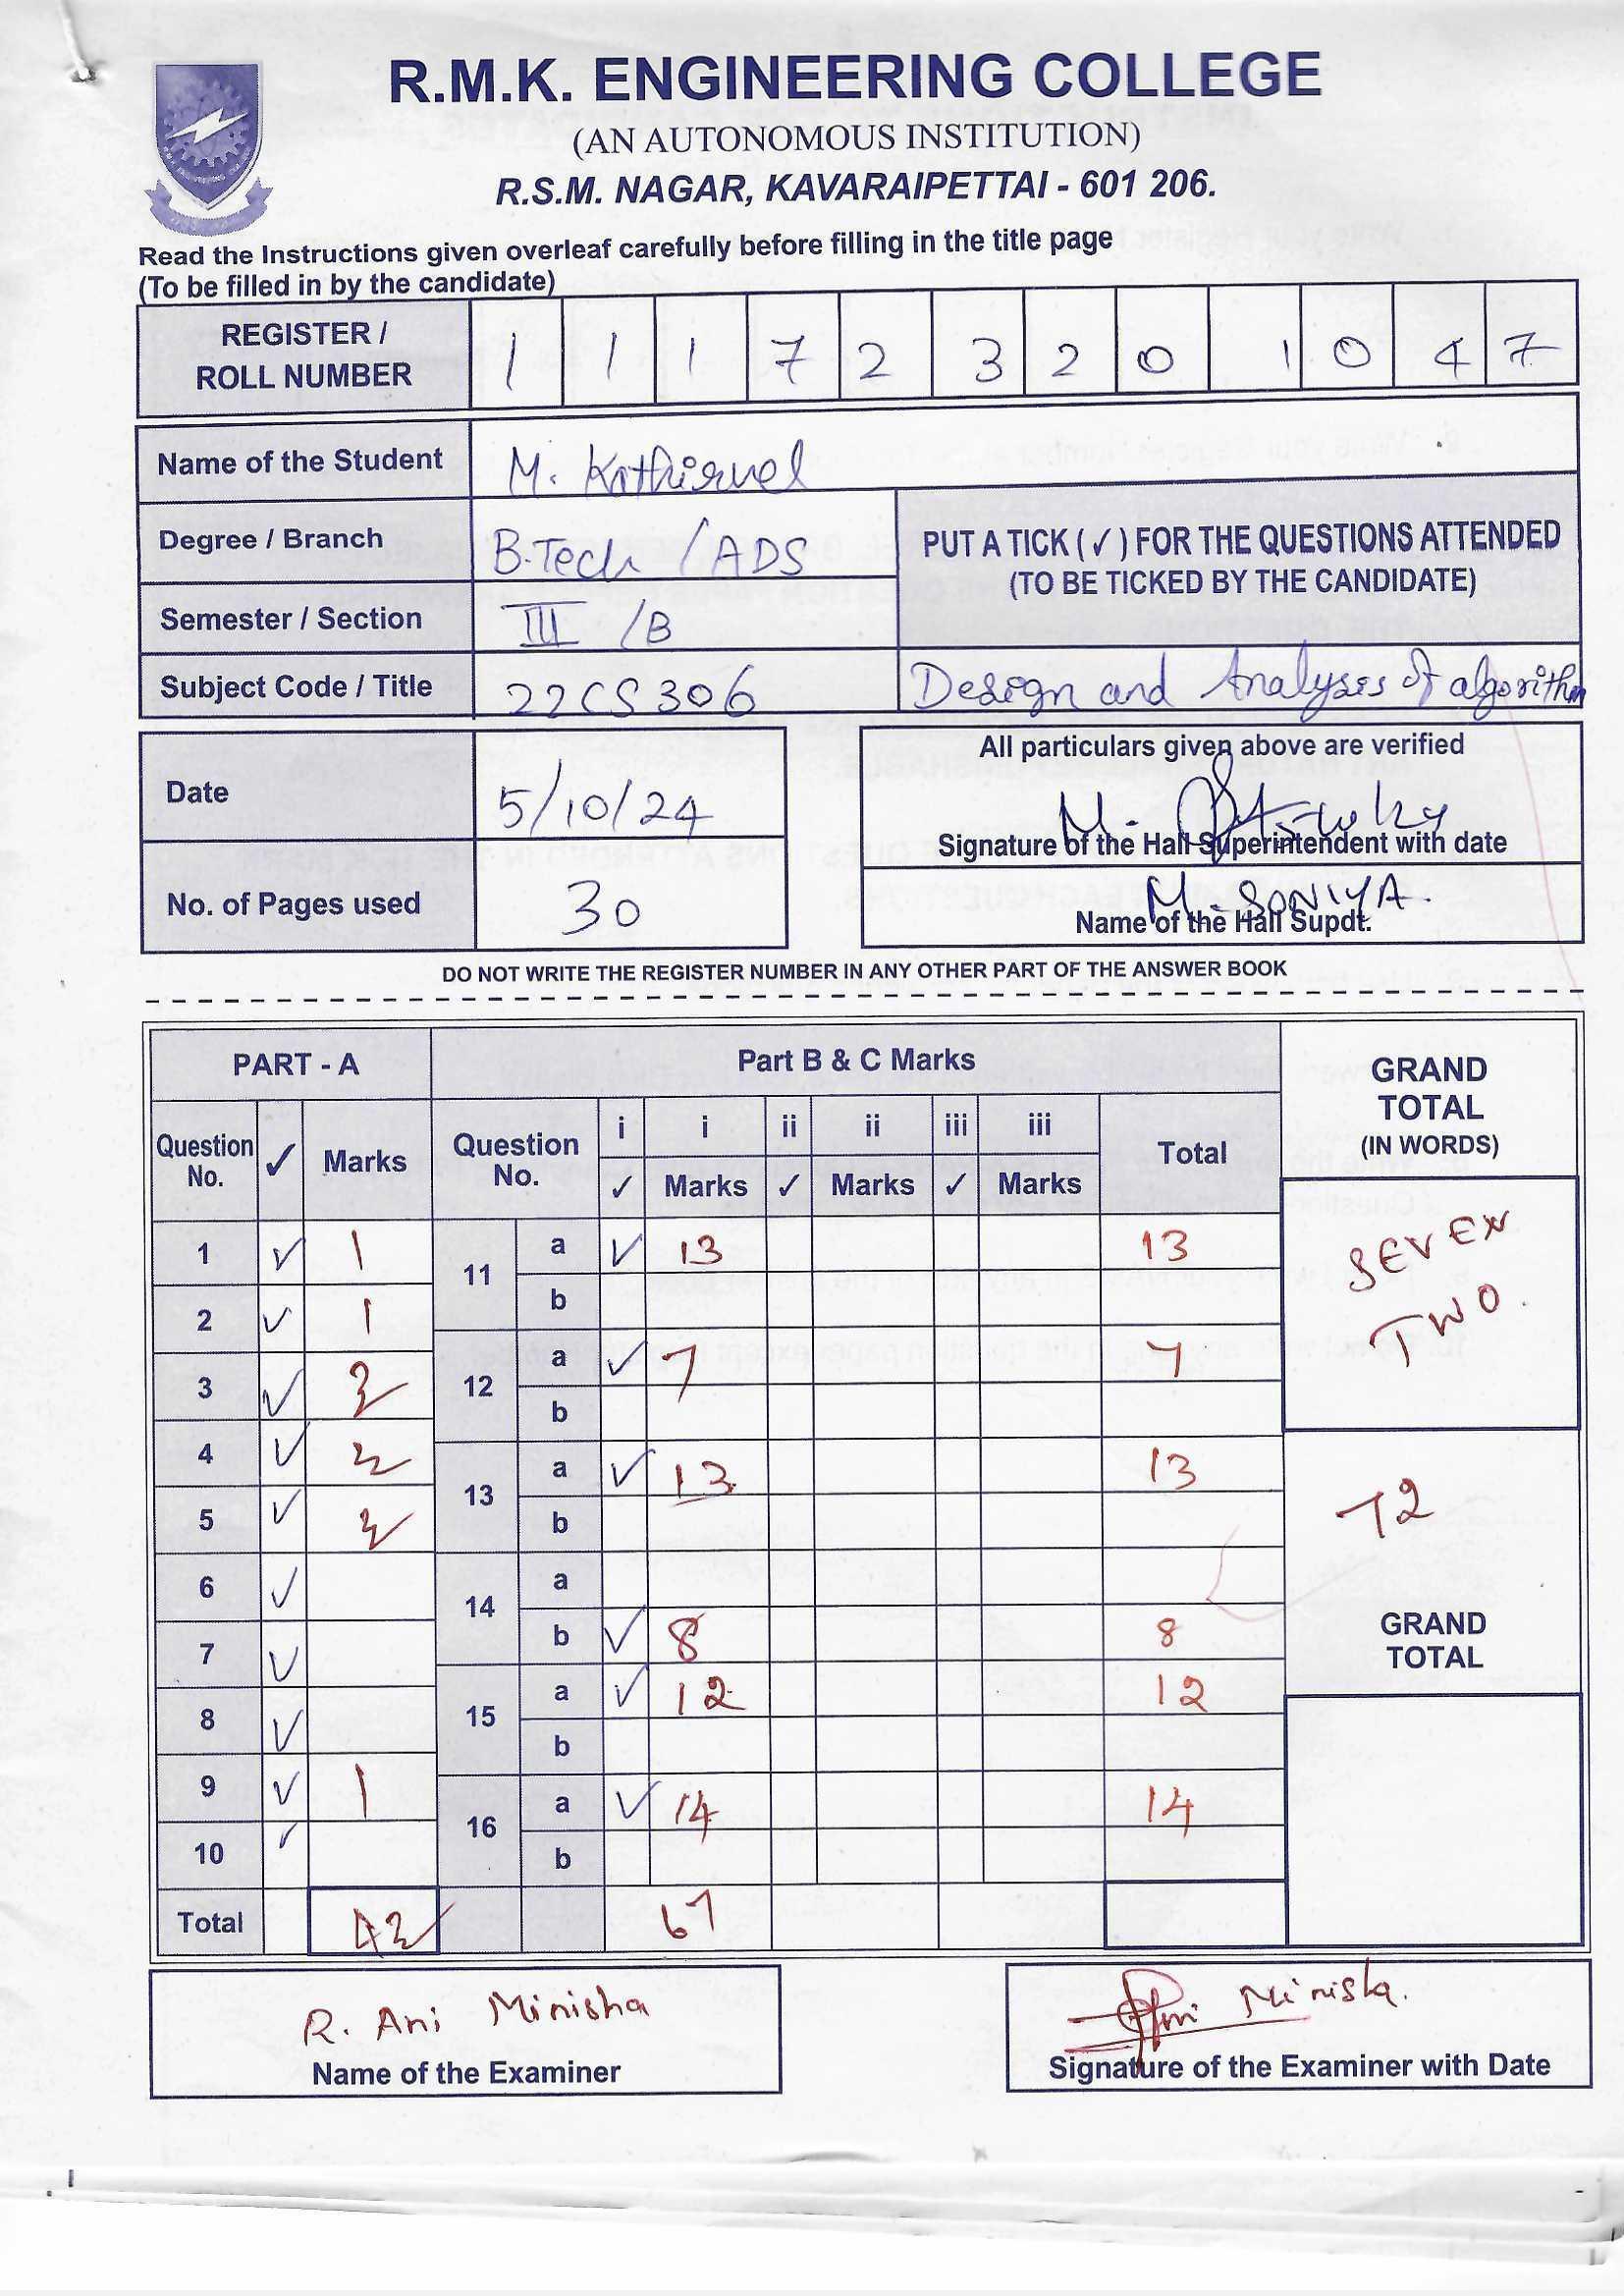 R.M.K. ENGINEERING COLLEGE
(AN AUTONOMOUS INSTITUTION)
R.S.M. NAGAR, KAVARAIPETTAI - 601 206.
Read the Instructions given overleaf carefully before filling in the title page
(To be filled in by the candidate)
REGISTER / ROLL NUMBER 1 1 1 7 2 3 2 0 1 0 4 7
Name of the Student M. Kathirvel
Degree / Branch B.Tech / ADS
PUT A TICK (✓) FOR THE QUESTIONS ATTENDED
(TO BE TICKED BY THE CANDIDATE)
Semester / Section III / B
Subject Code / Title 22CS306 Design and Analyses of algorithm
All particulars given above are verified
Date 5/10/24
Signature of the Hall Superintendent with date
No. of Pages used 30
M. SONIYA.
Name of the Hall Supdt.
DO NOT WRITE THE REGISTER NUMBER IN ANY OTHER PART OF THE ANSWER BOOK
PART - A Part B & C Marks GRAND TOTAL (IN WORDS)
Question No. ✓ Marks Question No. i ✓ i Marks ii ✓ ii Marks iii ✓ iii Marks Total
1 ✓ 1 11 a ✓ 13 13 SEVEN
2 ✓ 1 b TWO.
3 ✓ 12 a ✓ 7 7
b
4 ✓ 13 a ✓ 13 13
5 ✓ b 72
6 ✓ 14 a
7 ✓ b ✓ 8 8 GRAND TOTAL
8 ✓ 15 a ✓ 12 12
b
9 ✓ 1 16 a ✓ 14 14
10 ✓ b
Total 67
R. Ani Minisha
Name of the Examiner
Minisha.
Signature of the Examiner with Date